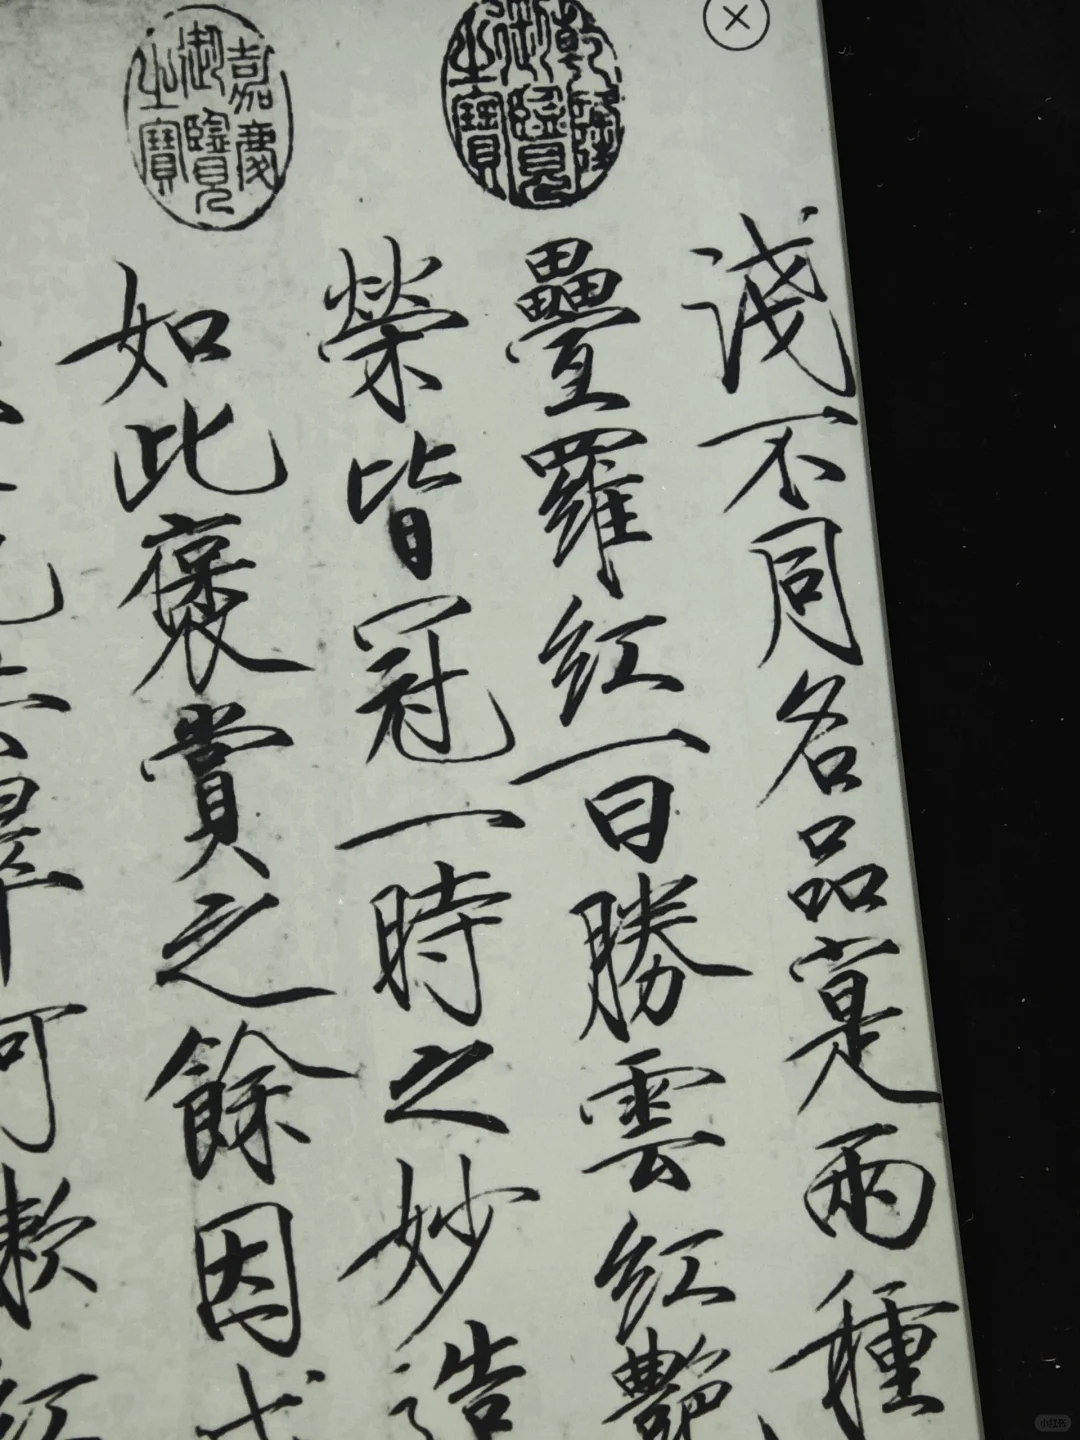 乾隆御覽之寶
嘉慶御覽之寶
淺不同名品寔兩種
疊羅紅一曰勝雲紅艷
榮皆冠一時之妙造
如此褒賞之餘因成
小红书